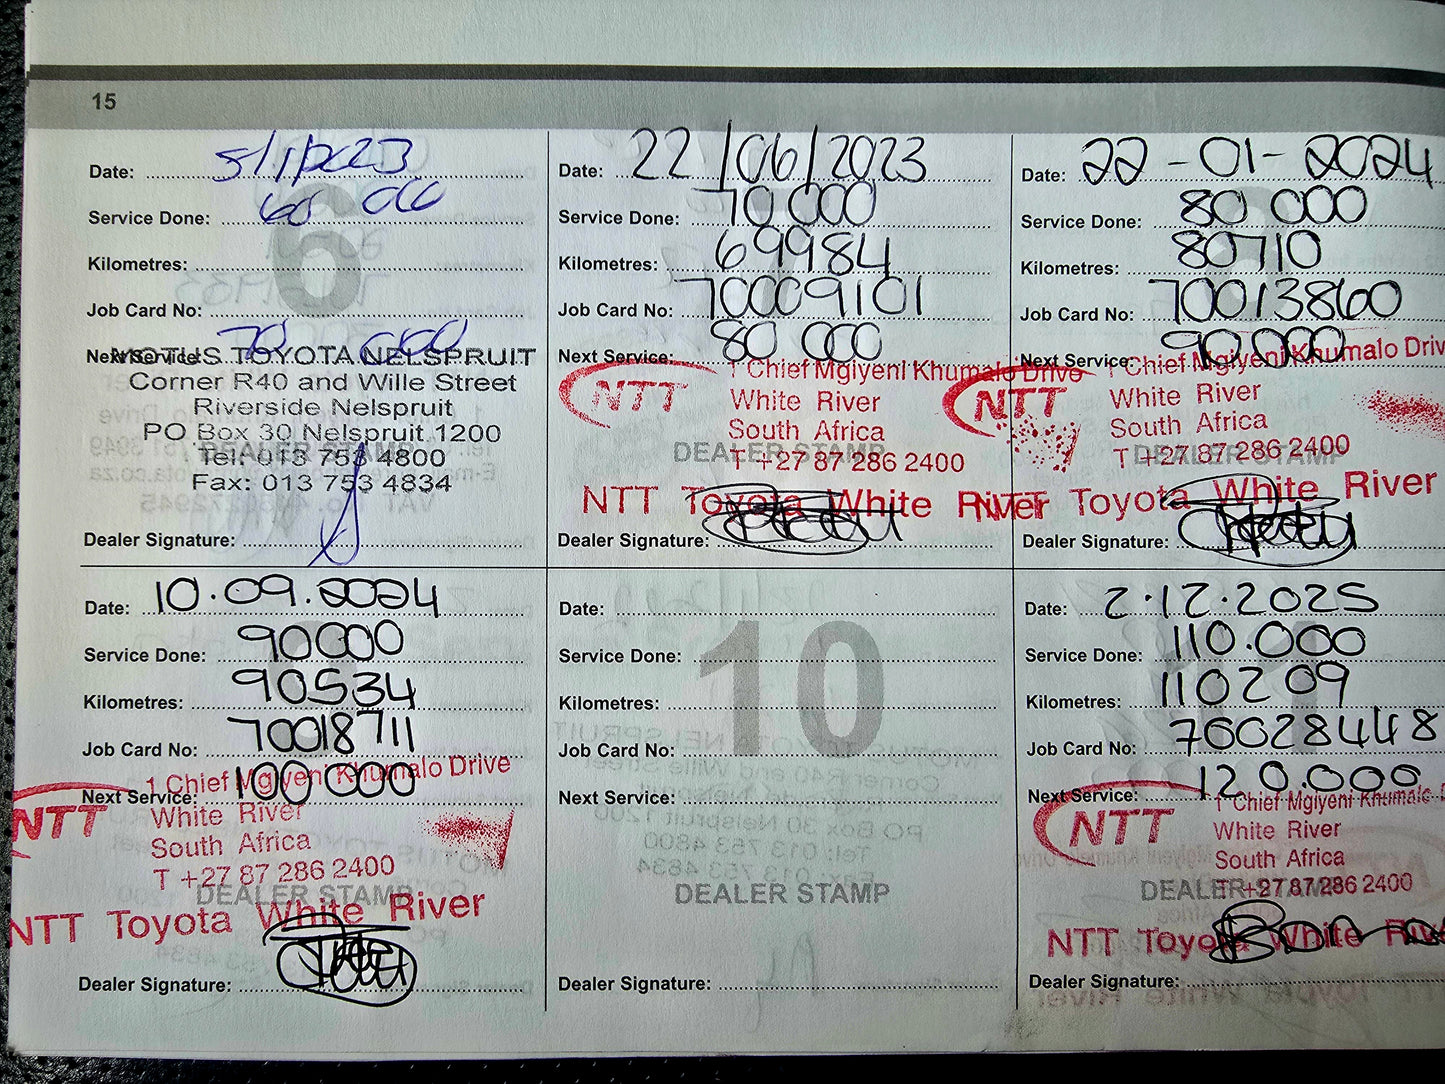 15
Date: 5/1/2023
Service Done: 60 000
Kilometres:
Job Card No:
Next Service: 70 000
MOTUS TOYOTA NELSPRUIT
Corner R40 and Wille Street
Riverside Nelspruit
PO Box 30 Nelspruit 1200
Tel: 013 753 4800
Fax: 013 753 4834
DEALER STAMP
Dealer Signature:
6
Date: 22/06/2023
Service Done: 70 000
Kilometres: 69984
Job Card No: 70009101
Next Service: 80 000
NTT
1 Chief Mgiyeni Khumalo Drive
White River
South Africa
T +27 87 286 2400
DEALER STAMP
NTT Toyota White River
Dealer Signature:
Date: 22-01-2024
Service Done: 80 000
Kilometres: 80710
Job Card No: 70013860
Next Service: 90 000
NTT
1 Chief Mgiyeni Khumalo Driv
White River
South Africa
T +27 87 286 2400
DEALER STAMP
NTT Toyota White River
Dealer Signature:
Date: 10.09.2024
Service Done: 90000
Kilometres: 90534
Job Card No: 70018711
Next Service: 100 000
NTT
1 Chief Mgiyeni Khumalo Drive
White River
South Africa
T +27 87 286 2400
DEALER STAMP
NTT Toyota White River
Dealer Signature:
Date:
Service Done:
Kilometres:
Job Card No:
Next Service:
10
DEALER STAMP
Dealer Signature:
Date: 2.12.2025
Service Done: 110.000
Kilometres: 110209
Job Card No: 760028448
Next Service: 120.000
NTT
1 Chief Mgiyeni Khumalo D
White River
South Africa
T +27 87 286 2400
DEALER STAMP
NTT Toyota White Rive
Dealer Signature: